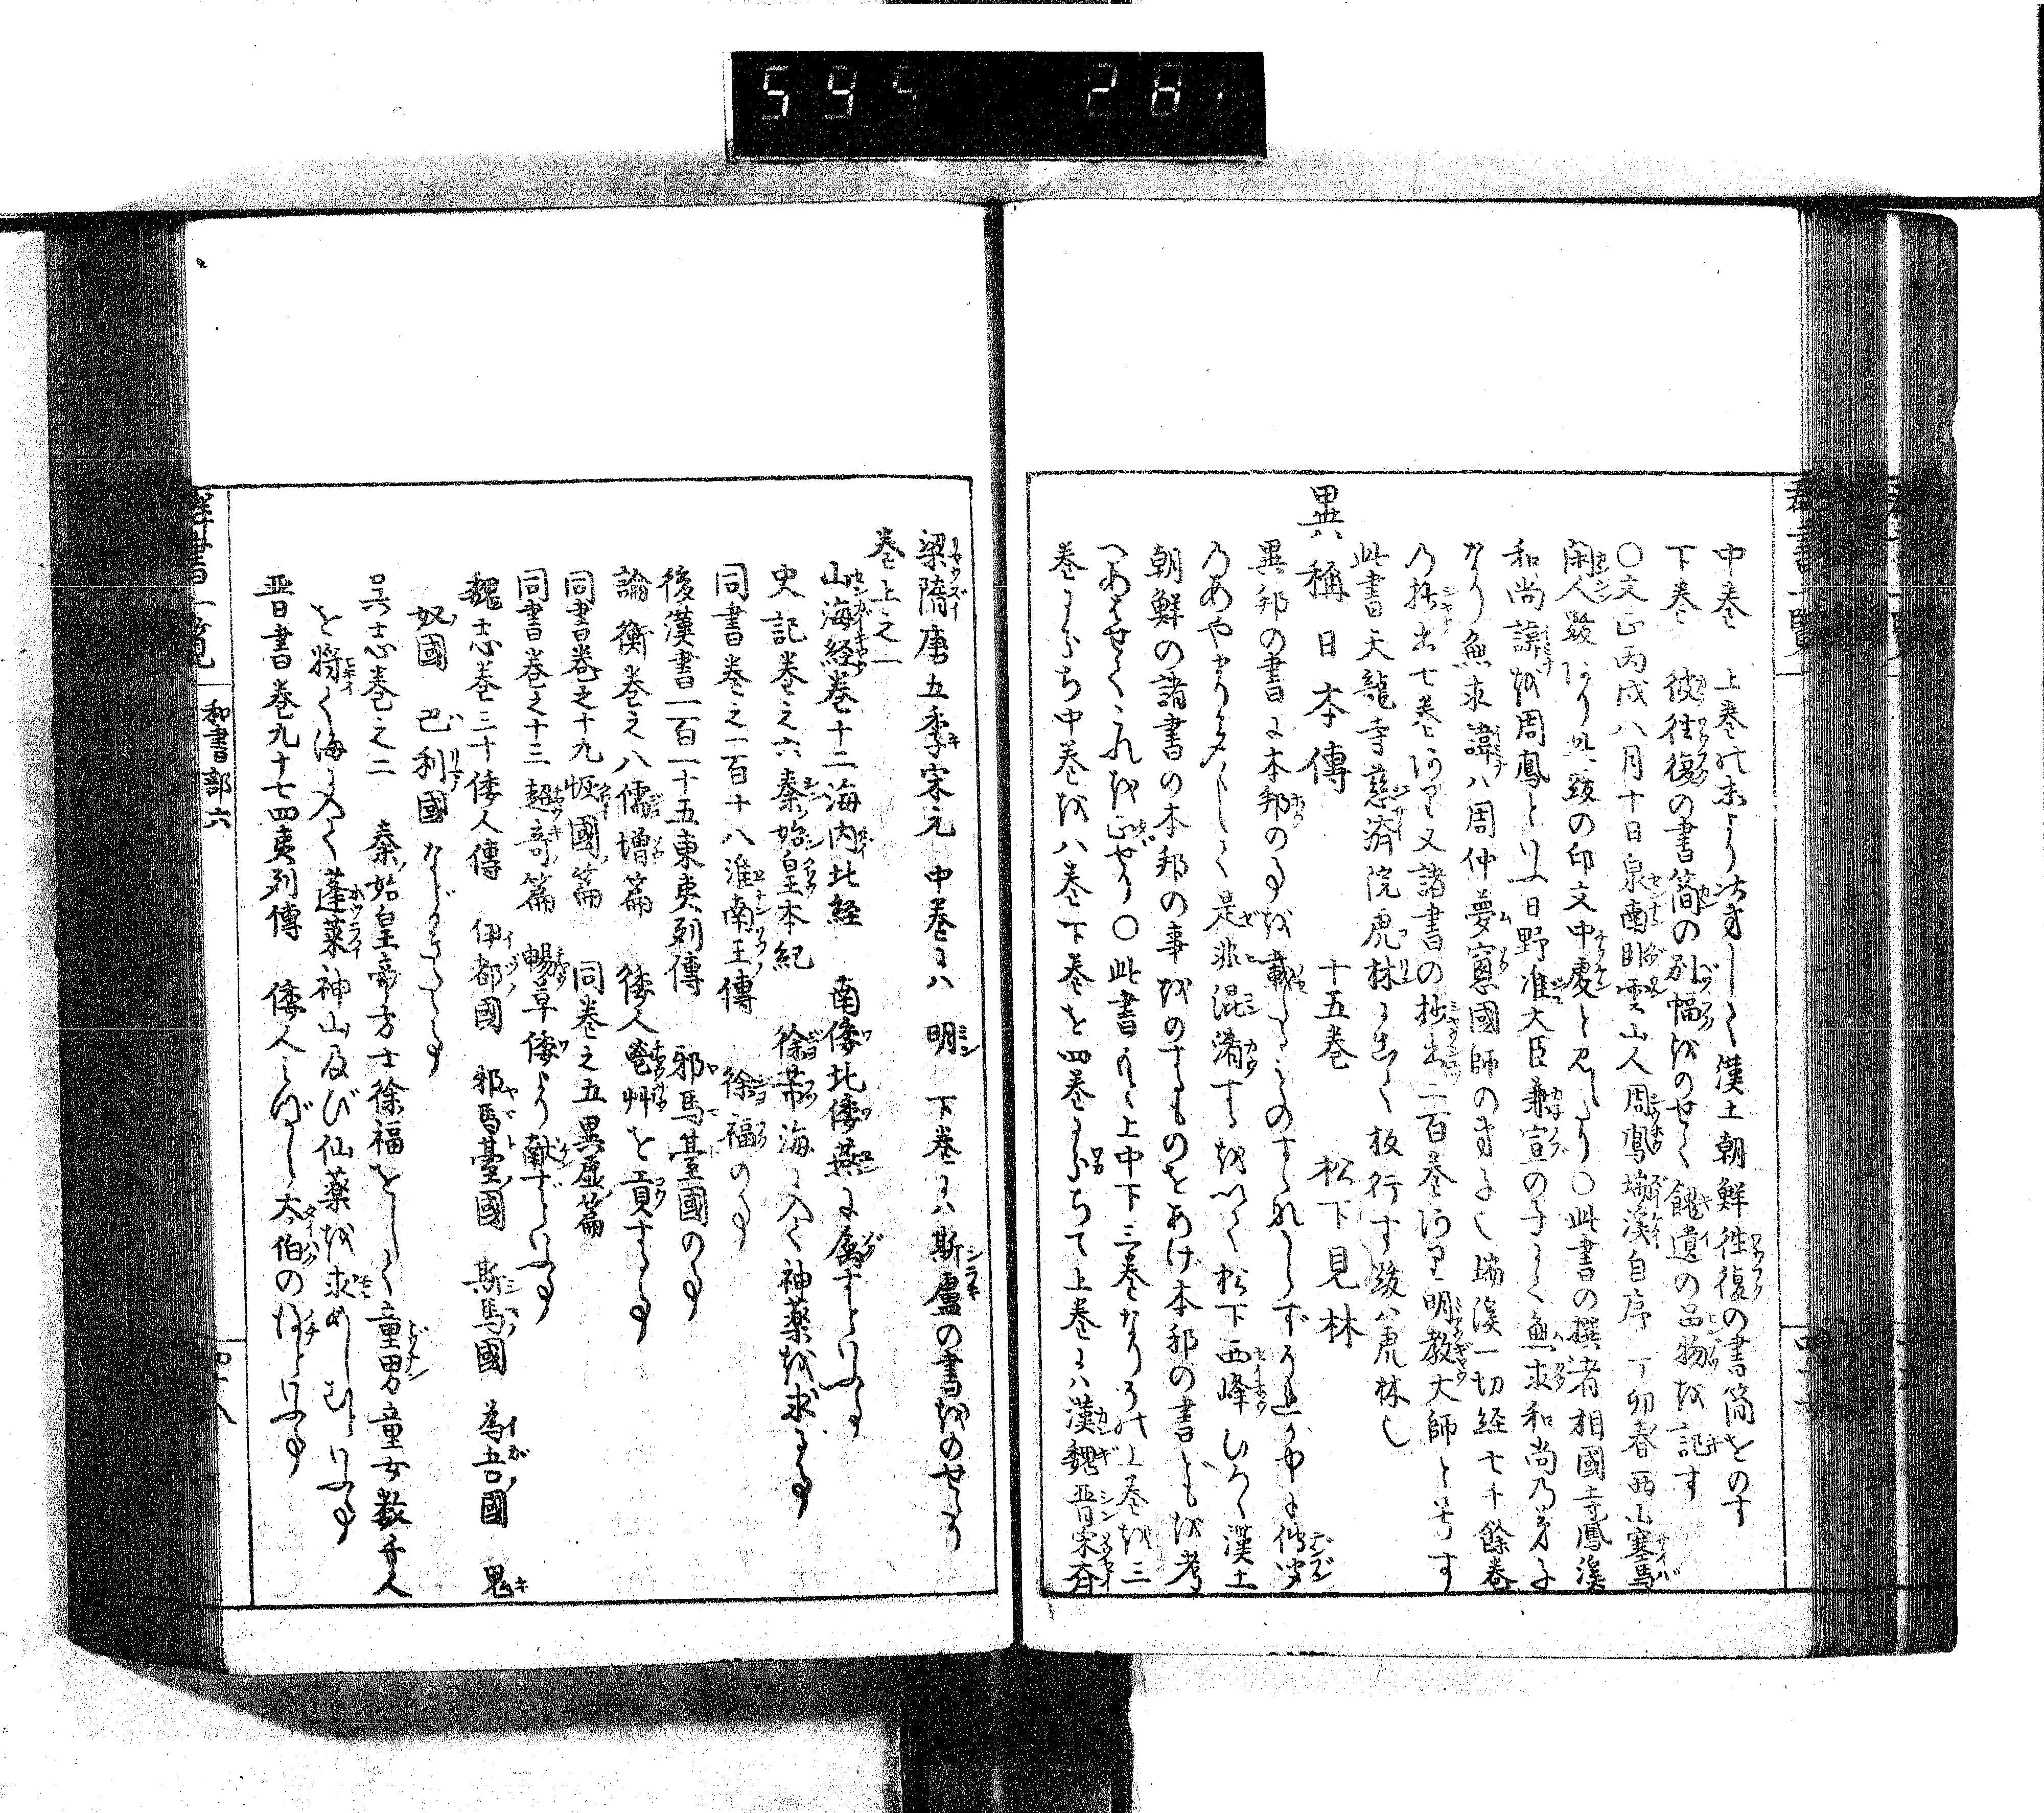 中巻　上巻の末より次第して漢土朝鮮徃復の書簡をのす
下巻　彼徃復の書簡の別幅をのせて餽遺の品物を記す
〇文正丙戌八月十日泉南臥雲山人周鳳瑞溪自序　丁卯春西山塞馬
閑人跋あり此跋の印文中慶と見えたり〇此書の撰者相國寺鳳溪
和尚諱を周鳳といふ日野准大臣兼宣の子にて無求和尚乃弟子
なり無求諱ハ周仲夢窓國師の弟子也瑞溪一切経七千餘巻
乃抄出七巻あり又諸書の抄出二百巻あり明教大師と号す
此書天龍寺慈済院虎林に出て板行す跋ハ虎林也
異稱日本傳　十五巻　松下見林
異邦の書に本邦の事を載
乃あやまり多くして是非混淆するを以て松下西峰ひろく漢土
朝鮮の諸書の本邦の事をのするものをあけ本邦の書ともを考
へあはせてこれを正せり〇此書もと上中下三巻なりその上巻を三
巻にわかち中巻を八巻下巻を四巻にわかちて上巻にハ漢魏晋宋斉
梁隋唐五季宋元　中巻にハ　明　下巻にハ斯盧の書をのせたり
巻上之一
山海経巻十二海内北経　南倭北倭燕に属すといふ事
史記巻之六秦始皇本紀　徐芾海に入て神薬を求る事
同書巻之一百十八淮南王傳　徐福の事
後漢書一百一十五東夷列傳　邪馬臺國の事
論衡巻之八儒増篇　倭人鬯艸を貢する事
同書巻之十九恢國篇　同巻之五異虚篇
同書巻之十三超奇篇　暢草倭より献ずといふ事
魏志巻三十倭人傳　伊都國　邪馬臺國　斯馬國　為吾國　鬼
奴國　巴利國　など
呉志巻之二　秦始皇帝方士徐福をして童男童女数千人
を將て海に入て蓬莱神山及び仙薬を求めしむといふ事
晋書巻九十七四夷列傳　倭人みづから太伯の後といふ事
群書一覧
和書部六